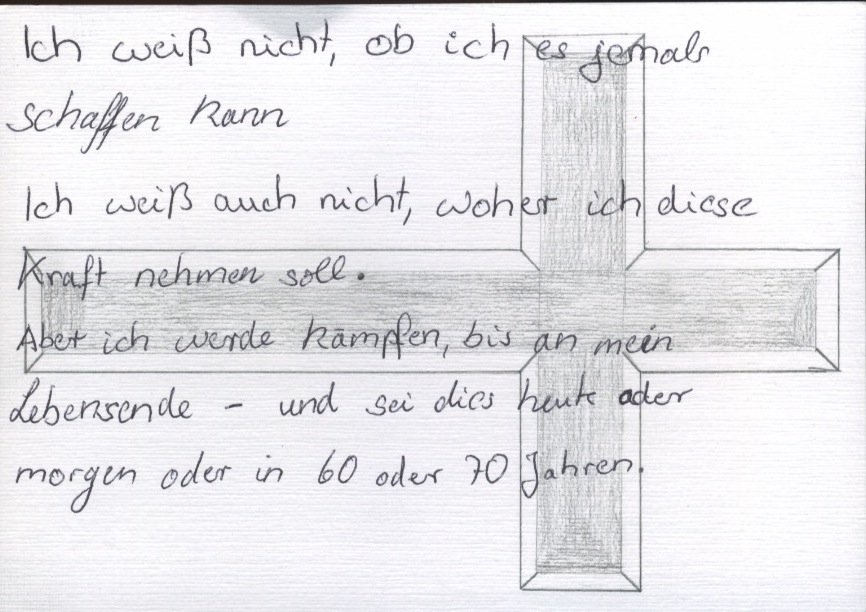 Ich weiß nicht, ob ich es jemals
schaffen kann
Ich weiß auch nicht, woher ich diese
Kraft nehmen soll.
Aber ich werde kämpfen, bis an mein
Lebensende – und sei dies heute oder
morgen oder in 60 oder 70 Jahren.